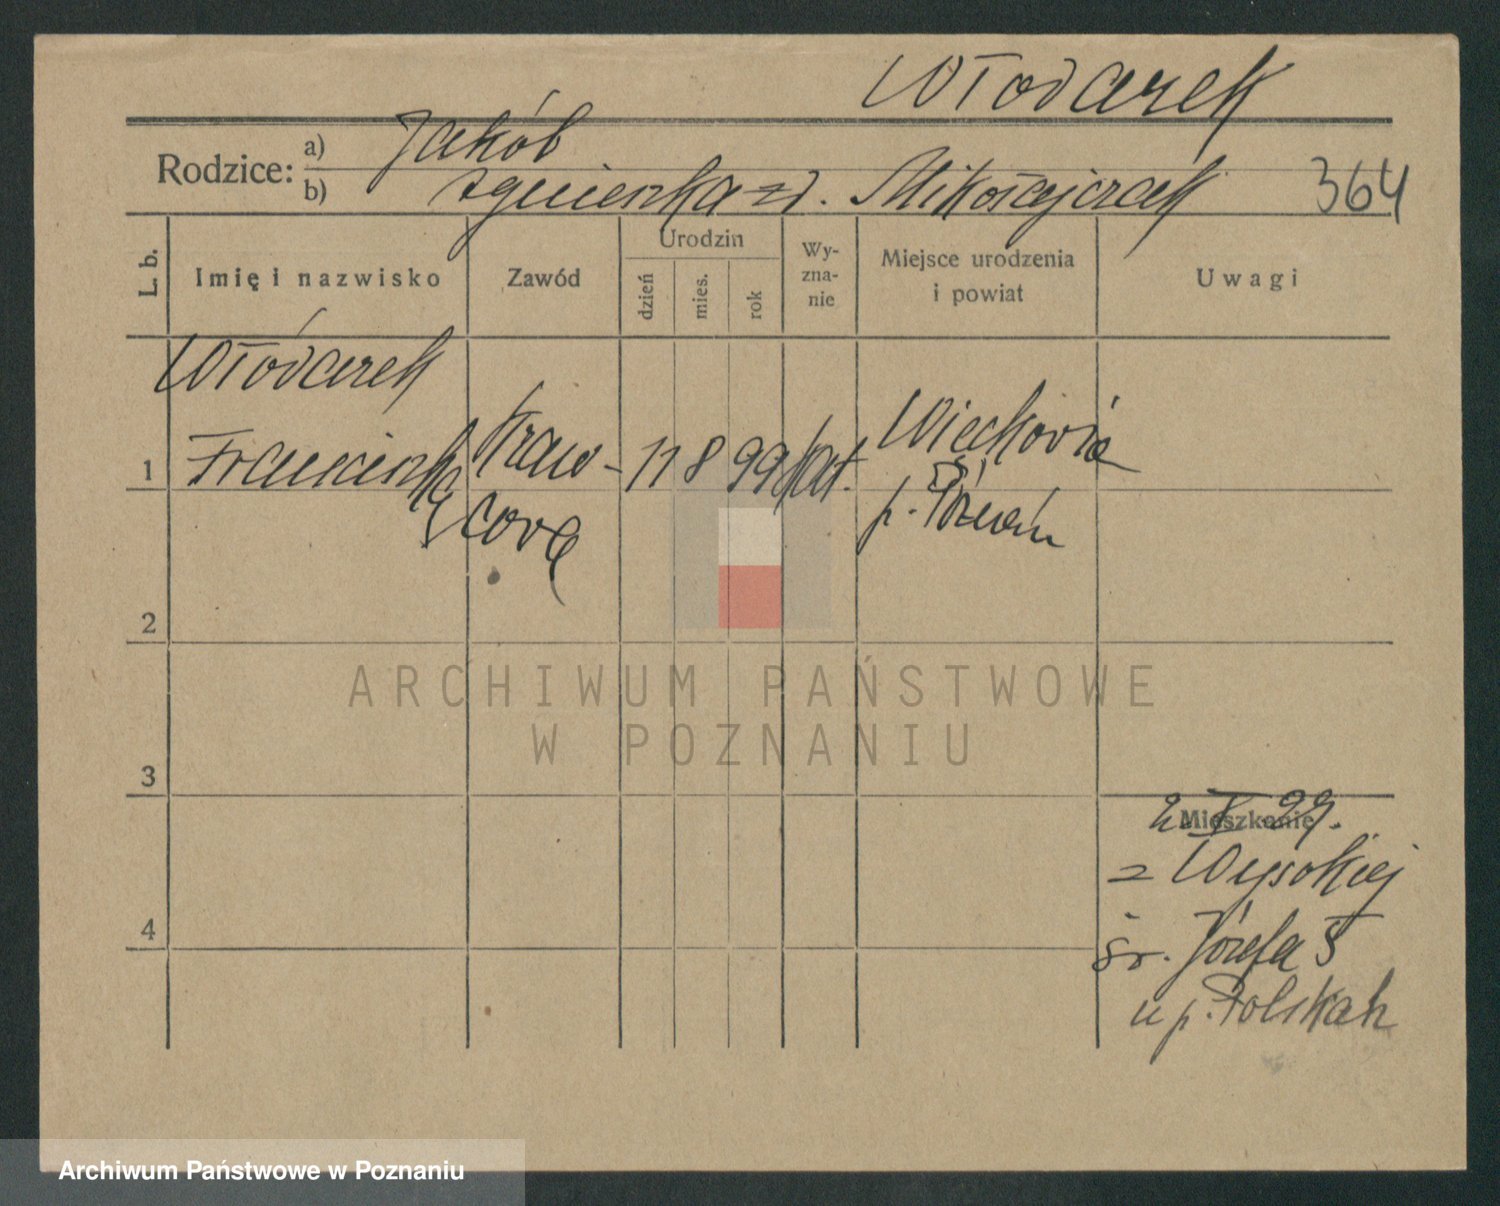 Włodarek
Rodzice: a) Jakób
b) Agnieszka z d. Mikołajczak 364
L. b. Imię i nazwisko Zawód Urodzin dzień mies. rok Wy-zna-nie Miejsce urodzenia i powiat Uwagi
Włódarek
1 Franciszka Kraw- 11 8 99 kat.
cova p. Poznań
2
3
Mieszkanie
4
z Wysokiej
św. Józefa 5
u p.
ARCHIWUM PAŃSTWOWE
W POZNANIU
Archiwum Państwowe w Poznaniu